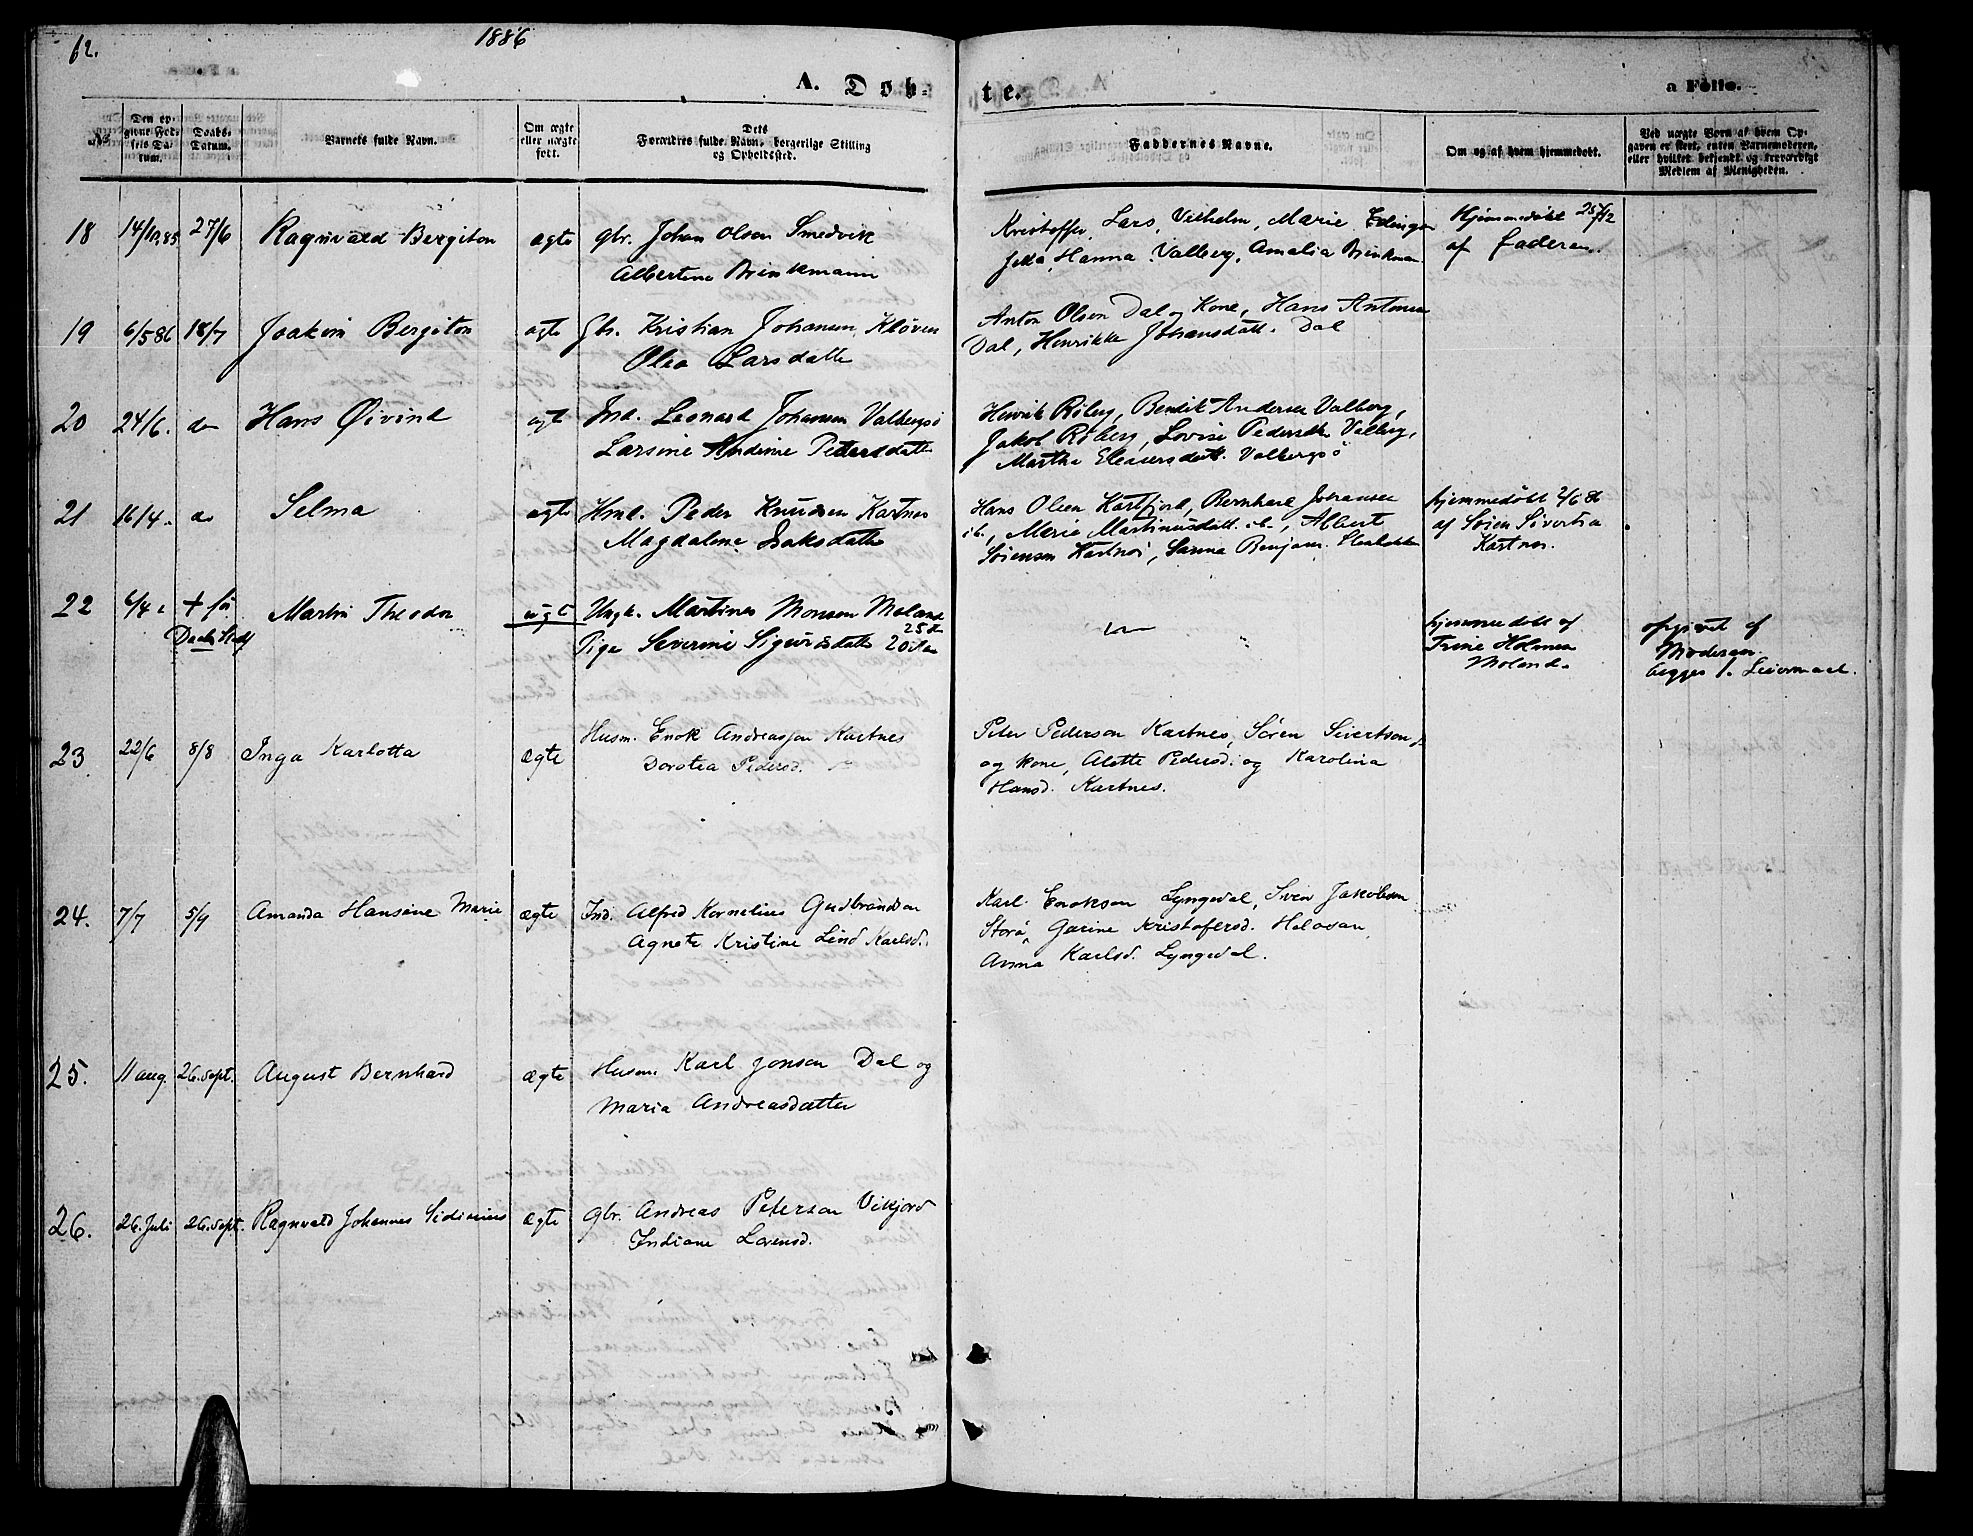 62.
1886
A. Døb-
te.
a Følio.
No.
Den op-
givne Fød-
sels Da-
tum.
Daabs-
Datum.
Barnets fulde Navn.
Om ægte
eller uægte
født.
Dets
Forældres fulde Navn, borgerlige Stilling
og Opholdssted.
Faddernes Navne.
Om og af hvem hjemmedøbt.
Ved uægte Børn af hvem Op-
gaven er skeet, enten Barnemoderen,
eller hvilket bekjendt og troværdigt
Medlem af Menigheden.
18 14/12 85 27/6 Ragnvald Bergiton ægte gbr. Johan Olsen Smedvik
Albertine Brinkmann
Kristoffer, Lars, Vilhelm, Marie
Hanna Valberg, Amalia Brinkman
Hjemmedøbt 25/12
af faderen.
19 6/5 86 18/7 Joakim Bergiton ægte Gbr. Kristian Johansen Kløven
Olea Larsdatte
Anton Olsen Dal og Kone, Hans Antonsen
Dal, Henrikke Johansdatt. Dal
20 24/6. do Hans Øivind ægte Ind. Leonard Johansen Valbergsö
Larsine Andine Pedersdatte
Henrik Røberg, Bendik Andersen Valberg,
Jakob Røberg, Lovise Pedersdtt Valberg,
Martha Eleasersdatt. Valbergsö
21 16/4. do Selma ægte Hmd. Peder Knudsen Kartnes
Magdalene Isaksdatte
Hans Olsen Kartfjord, Bernhard Johansen
ib., Marie Martinusdatt. ib., Albert
Sörensen Kartnes, Sanna Benjam.
hjemmedøbt 2/6 86
af Sören Sivertsen
Kartnes.
22 6/4 + før
Daab
Martin Theodor uægt Ungk. Martines Monsen Moland
25
Pige Severine Sigurdsdatte 20
hjemmedøbt af
Trine Holmen
Moland.
opgivet af
Moderen.
begges 1. Leiermaal.
23 22/6 8/8 Inga Karlotta ægte Husm. Enok Andreassen Kartnes
Dorotea Pedersd.
Peter Pederson Kartnes, Sören Sivertson
og kone, Alette Pedersd. og Karolina
Hansd. Kartnes.
24. 7/7 5/9 Amanda Hansine Marie ægte Ind. Alfred Kornelius Gudbrandsen
Agnete Kristine Lind Karlsd.
Karl Enokson Lyngedal, Sven Jakobson
Storå, Garine Kristofersd. Helosan,
Anna Karlsd. Lyngedal.
25. 11 aug. 26. sept. August Bernhard ægte Husm. Karl Jonson Dal og
Maria Andreasdatter
26. 26. Juli 26. sept. Ragnvald Johannes Sidinius ægte gbr. Andreas Peterson Vikjord
Indiane Lorensd.